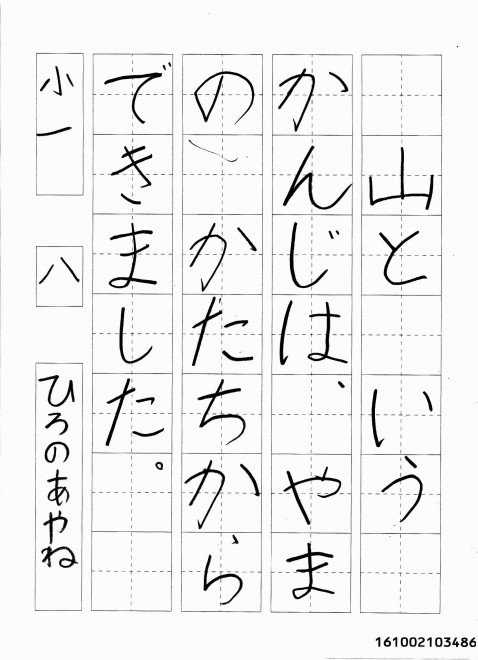 山と いう
かんじは、やま
の かたちから
できました。
小一
八
ひろのあやね
161002103486